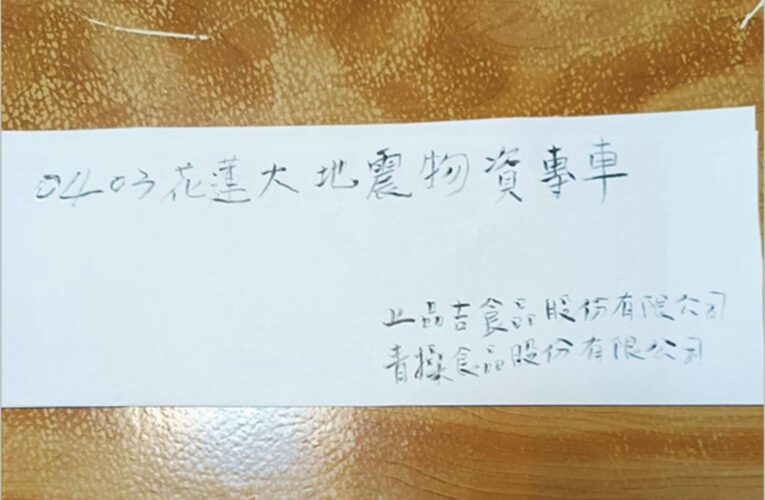 0403花蓮大地震物資專車
上品吉食品股份有限公司
青操食品股份有限公司